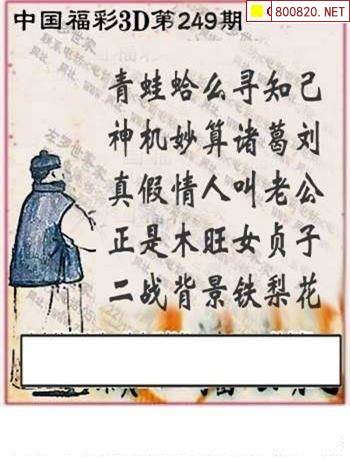 800820.NET
中国福彩3D第249期
青蛙蛤么寻知己
神机妙算诸葛刘
真假情人叫老公
正是木旺女贞子
二战背景铁梨花